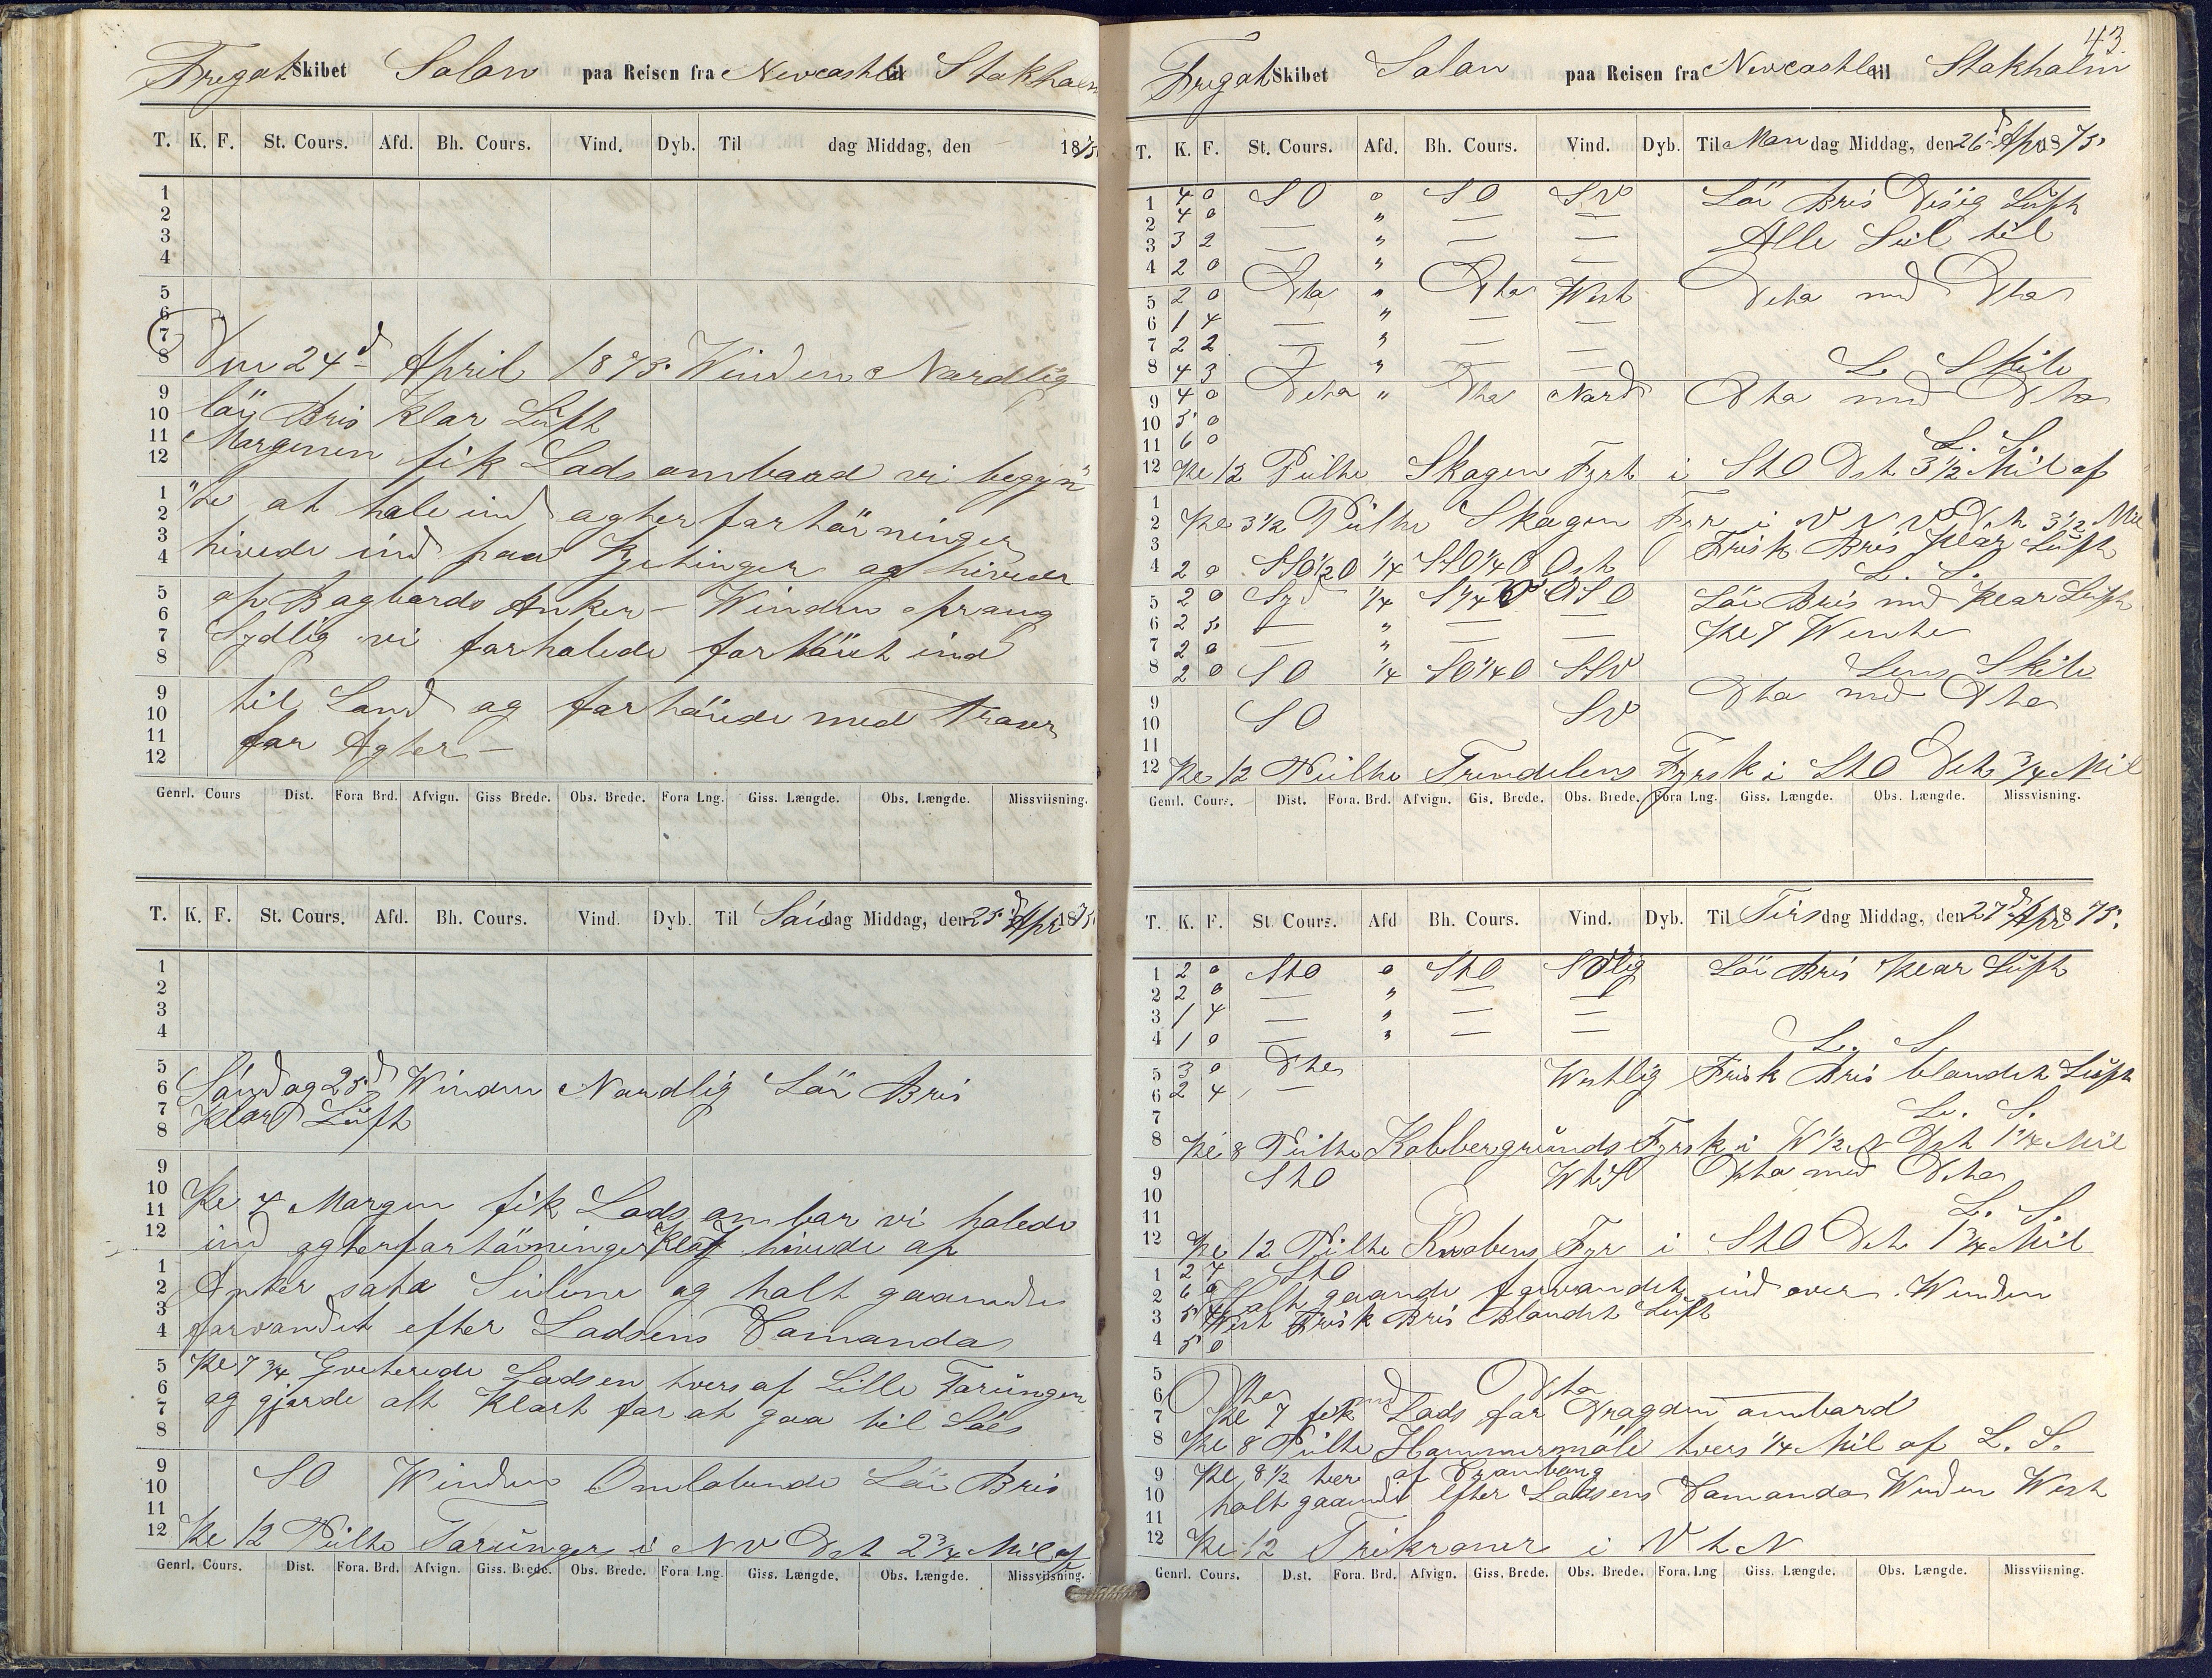 Fregat Skibet Solon paa Reisen fra Newcastle til Stokholm
T. K. F. St. Cours. Afd. Bh. Cours. Vind. Dyb. Til dag Middag, den 1875
1
2
3
4
5
6
7
8 Den 24d April 1875. Winden Nordlig
9
10 löi Bris klar Luft
11 Morgenen fik Lods ombord vi begyn"
12
1 "te at hale ind agterfortöininger
2
3 hivede ind paa Kjetinger og hivede
4
5 op Bagbords Anker – Winden sprang
6
7 Sydlig vi forhalede fortöiet ind
8
9 til Land og fortöiede med Traser
10
11 for Agter –
12
Genrl. Cours Dist. Fora Brd. Afvign. Giss Brede. Obs. Brede. Fora Lng. Giss. Længde. Obs. Længde. Missviisning.
T. K. F. St. Cours. Afd. Bh. Cours. Vind. Dyb. Til Sön dag Middag, den 25d Apr 1875
1
2
3
4
5
6 Söndag 25d Winden Nordlig Löi Bris
7 Klar Luft
8
9
10
11 Kl 4 Morgen fik Lods ombor vi halede
12 ind agterfortöininger Kl 7 hivede op
1
2 Anker satte Seilene og holt gaaende
3
4 farvandet efter Lodsens Comando
5 Kl 7 3/4 Lodsen tvers af Lille Torungen
6
7 og gjorde alt Klart for at gaa til Söes
8
9
10 SO Winden Omlöbende Löi Bris
11
12 Kl 12 Peilte Torungen i NV Dst 2 3/4 Mil af
Genrl. Cours. Dist. Fora. Brd. Afvign. Giss. Brede. Obs. Brede. Fora Lng. Giss. Længde. Obs. Længde. Missviisning.
43
Fregat Skibet Solon paa Reisen fra Newcastle til Stokholm
T. K. F. St. Cours. Afd. Bh. Cours. Vind. Dyb. Til Man dag Middag, den 26d Apr 1875.
1 4 0 SO 0 SO SV Löi Bris Disig Luft
2 4 0 — " — —
3 3 2 — " — — Alle Seil til
4 2 0 — " —
5 2 0 Dto " Dto West Dito med Dto
6 1 4 — " — —
7 2 2 — " — —
8 4 3 — " — L. Skib
9 4 0 Dito " Dto Nord Dto med Dto
10 5 0
11 6 0 L. S.
12 Kl 12 Peilte Skagen Fyrt i StO Dst 3 1/2 Mil af
1
2 Kl 3 1/2 Peilte Skagen Fyr i VNV Dst 3 1/2 Mil
3 Frisk Bris Klar Luft
4 2 0 SSO 1/2 O 1/4 SSO 1/4 O Ost L. S.
5 2 0 Syd 1/4 S 1/4 OSO Löi Bris med Klar Luft
6 2 5 — " — — Kl 7 Wente
7 2 0 — " — —
8 2 0 SO 1/4 SO 1/4 O SSV Lens Skib
9 Dto med Dto
10 SO SV
11
12 Kl 12 Peilte Trendelens Fyrsk i StO Dst 3/4 Mil
Genrl. Cours. Dist. Fora. Brd. Afvign. Gis. Brede. Obs. Brede. Fora Lng. Giss. Længde. Obs. Længde. Missvisning.
T. K. F. St. Cours. Afd Bh. Cours. Vind. Dyb. Til Tirs dag Middag, den 27d Apr 1875.
1 2 0 StO 0 StO SVlig Löi Bris Klar Luft
2 2 0 — " — —
3 1 4 — " — —
4 1 0 — " — — L. S.
5 3 0 Dto Westlig Frisk Bris blandet Luft
6 2 4 —
7 L. S.
8 Kl 8 Peilte Kobbergrunds Fyrsk i W 1/2 N Dst 1 1/4 Mil
9 StO WtS Dto med Dto
10
11 L. S.
12 Kl 12 Peilte Knobens Fyr i StO Dst 1 3/4 Mil
1 2 4 StO
2 6 0 Holt gaaende farvandet ind over. Winden
3 5 4 West Frisk Bris Blandet Luft
4 5 0
5
6 Dto med Dito
7 Kl 7 fik Lods for Dragden ombord
8 Kl 8 Peilte Hammermöle tvers 1/4 Mil af L. S.
9 Kl 8 1/2 tvers af Cronborg
10 holt gaaende efter Lodsens Comando Winden West
11
12 Kl 12 Trekroner i VtN
Genrl. Cours. Dist. Fora. Brd. Afvign. Giss. Brede. Obs. Brede. Fora. Lng Giss. Længde. Obs. Længde. Missviisning.